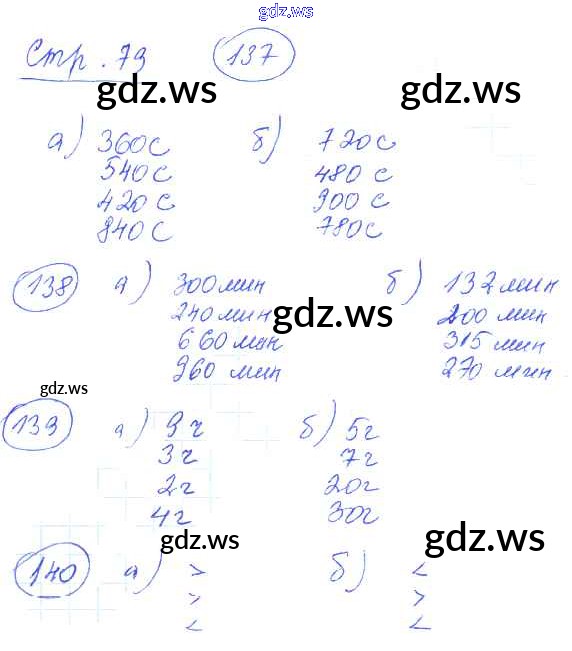 gdz.ws
Стр. 79 137
gdz.ws gdz.ws
а) 360с б) 720с
540с 480 с
420 с 900 с
840 с 780с
138 а) 300 мин б) 132 мин
240 мин 200 мин
gdz.ws
660 мин 315 мин
960 мин 270 мин
gdz.ws
139 а) 9 г б) 5г
3 г 7г
2г 20г
4 г 30г
gdz.ws gdz.ws
140 а) > б) <
> >
< <